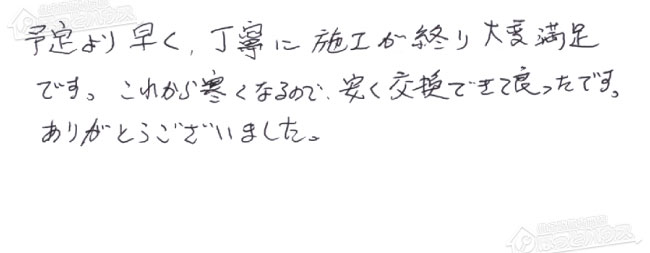 予定より早く、丁寧に施工が終り大変満足
です。これから寒くなるので、安く交換できて良ったです。
ありがとうございました。